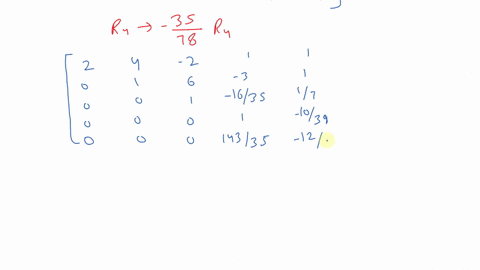 R4 → -35/78 R4
2 4 -2 1 1
0 1 6 -3 1
0 0 1 -16/35 1/7
0 0 0 1 -10/39
0 0 0 143/35 -12/